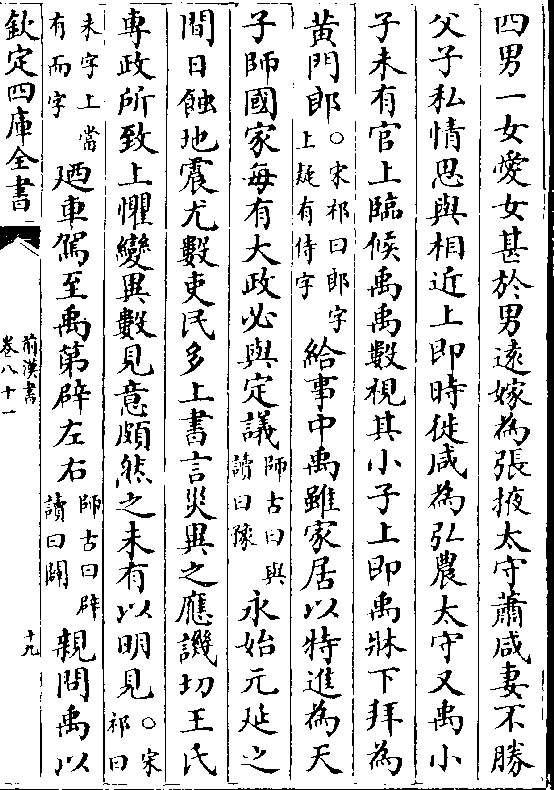 四男一女愛女甚於男逺嫁為張掖太守蕭咸妻不勝
父子私情思與相近上即時徙咸為弘農太守又禹小
子未有官上臨候禹禹數視其小子上即禹牀下拜為
黄門郎○宋祁曰郎字上疑有侍字給事中禹雖家居以特進為天
子師國家每有大政必與定議師古曰與讀曰豫永始元延之
間日蝕地震尤數吏民多上書言災異之應譏切王氏
専政所致上懼變異數見意頗然之未有以明見○宋祁曰
未字上當有而字廼車駕至禹第辟左右師古曰辟讀曰闢親問禹以
欽定四庫全書
前漢書
卷八十一
十九